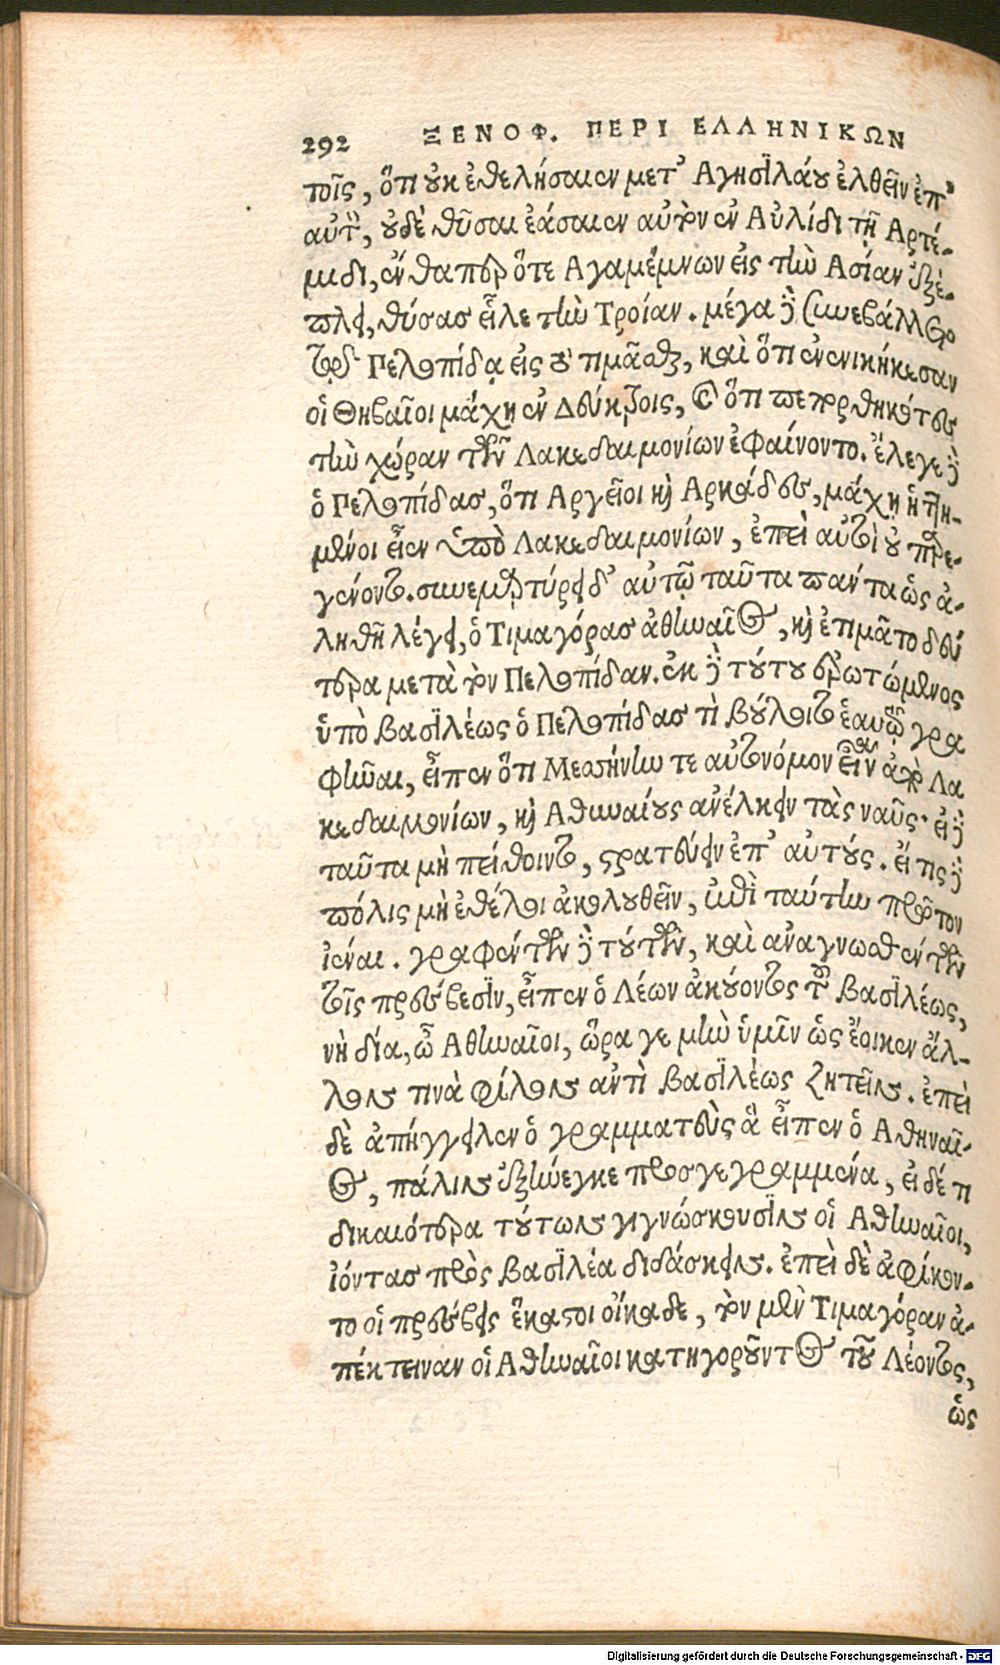 292 ΞΕΝΟΦ. ΠΕΡΙ ΕΛΛΗΝΙΚΩΝ
τοῖς, ὅτι οὐκ ἐθελήσαιεν μετ' Αγησιλάου ἐλθεῖν ἐπ'
αὐτὸν, οὐδὲ θῦσαι ἐάσαιεν αὐτὸν ἐν Αὐλίδι τῇ Αρτέ-
μιδι, ἔνθαπερ ὅτε Αγαμέμνων εἰς τὴν Ασίαν ἐξέ-
πλει, θύσας εἷλε τὴν Τροίαν. μέγα δὲ συνεβάλλετο
τῷ Πελοπίδᾳ εἰς τὸ τιμᾶσθαι, καὶ ὅτι ἐνενικήκεσαν
οἱ Θηβαῖοι μάχῃ ἐν Λεύκτροις, καὶ ὅτι πεπορθηκότες
τὴν χώραν τῶν Λακεδαιμονίων ἐφαίνοντο. ἔλεγε δὲ
ὁ Πελοπίδας, ὅτι Αργεῖοι καὶ Αρκάδες, μάχῃ ἡττη-
μένοι εἶεν ὑπὸ Λακεδαιμονίων, ἐπεὶ αὐτοὶ οὐ παρε-
γένοντο. συνεμαρτύρει δ' αὐτῷ ταῦτα πάντα ὡς ἀ-
ληθῆ λέγει, ὁ Τιμαγόρας ἀθηναῖος, καὶ ἐτιμᾶτο δεύ
τερα μετὰ τὸν Πελοπίδαν. ἐκ δὲ τούτου ἐρωτώμενος
ὑπὸ βασιλέως ὁ Πελοπίδας τὶ βούλοιτο ἑαυτῷ γρα
φῆναι, εἶπεν ὅτι Μεσσήνην τε αὐτόνομον εἶναι ἀπὸ Λα
κεδαιμονίων, καὶ Αθηναίους ἀνέλκειν τὰς ναῦς· εἰ δὲ
ταῦτα μὴ πείθοιντο, στρατεύειν ἐπ' αὐτούς. εἴ τις δὲ
πόλις μὴ ἐθέλοι ἀκολουθεῖν, ἐπὶ ταύτην πρῶτον
ἰέναι. γραφέντων δὲ τούτων, καὶ ἀναγνωσθέντων
τοῖς πρέσβεσιν, εἶπεν ὁ Λέων ἀκούοντος τοῦ βασιλέως,
νὴ δία, ὦ Αθηναῖοι, ὥρα γε μὴν ὑμῖν ὡς ἔοικεν ἄλ-
λον τινὰ φίλον ἀντὶ βασιλέως ζητεῖν. ἐπεὶ
δὲ ἀπήγγειλεν ὁ γραμματεὺς ἃ εἶπεν ὁ Αθηναῖ-
ος, πάλιν ἐξήνεγκε προσγεγραμμένα, εἰ δέ τι
δικαιότερα τούτων γιγνώσκουσιν οἱ Αθηναῖοι,
ἰόντας πρὸς βασιλέα διδάσκειν. ἐπεὶ δὲ ἀφίκον-
το οἱ πρέσβεις ἕκαστοι οἴκαδε, τὸν μὲν Τιμαγόραν ἀ-
πέκτειναν οἱ Αθηναῖοι κατηγοροῦντος τοῦ Λέοντος,
ὡς
Digitalisierung gefördert durch die Deutsche Forschungsgemeinschaft - DFG